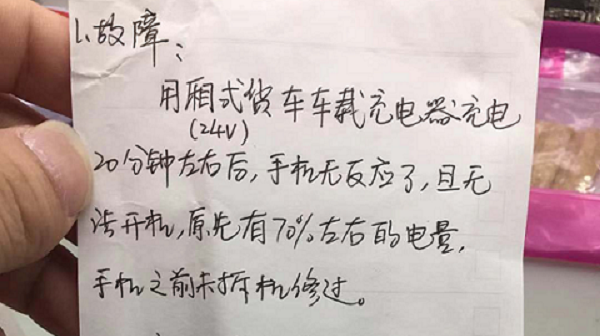 1.故障：
用厢式货车车载充电器充电
(24V)
20分钟左右后，手机无反应了，且无
法开机，原先有70%左右的电量，
手机之前未拆机修过。